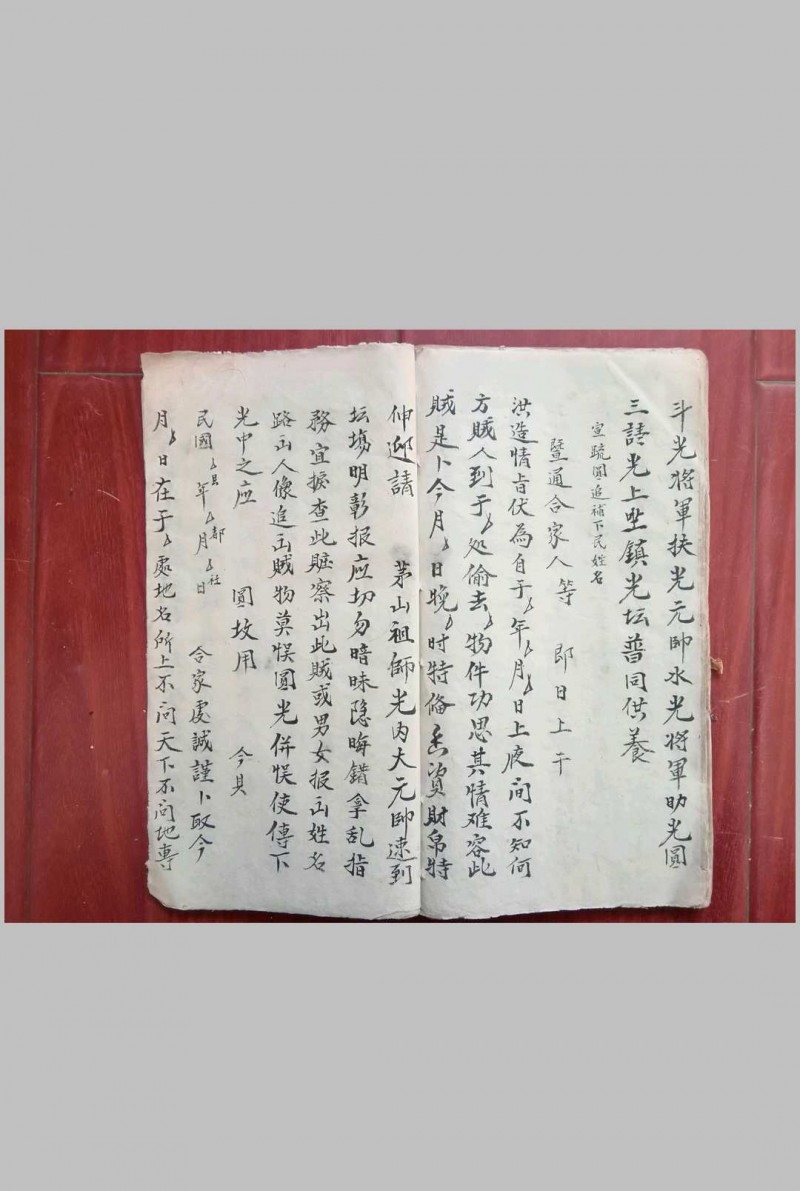 斗光将軍扶光元帥水光将軍助光圓
三請光上坐鎮光坛普同供養
宣疏圓追補下民姓名
暨通合家人等　即日上干
洪造情旨伏為自于〻年〻月〻日上夜间不知何
方贼人到于〻处偷去〻物件功思其情难容此
贼是卜今月〻日晚〻时特俻香資財帛特
伸迎請　茅山祖師光内大元帥速到
坛塲明彰报应切勿暗昧隐晦錯拿乱指
務宜捉查此賍察出此贼或男女报出姓名
路出人像追出贼物莫悮圓光併悮使傳下
光中之应　圓坟用　今具
民國〻年〻月〻日　合家虔誠謹卜取今
〻县〻都〻社
月〻日在于〻處地名所上不问天下不问地專